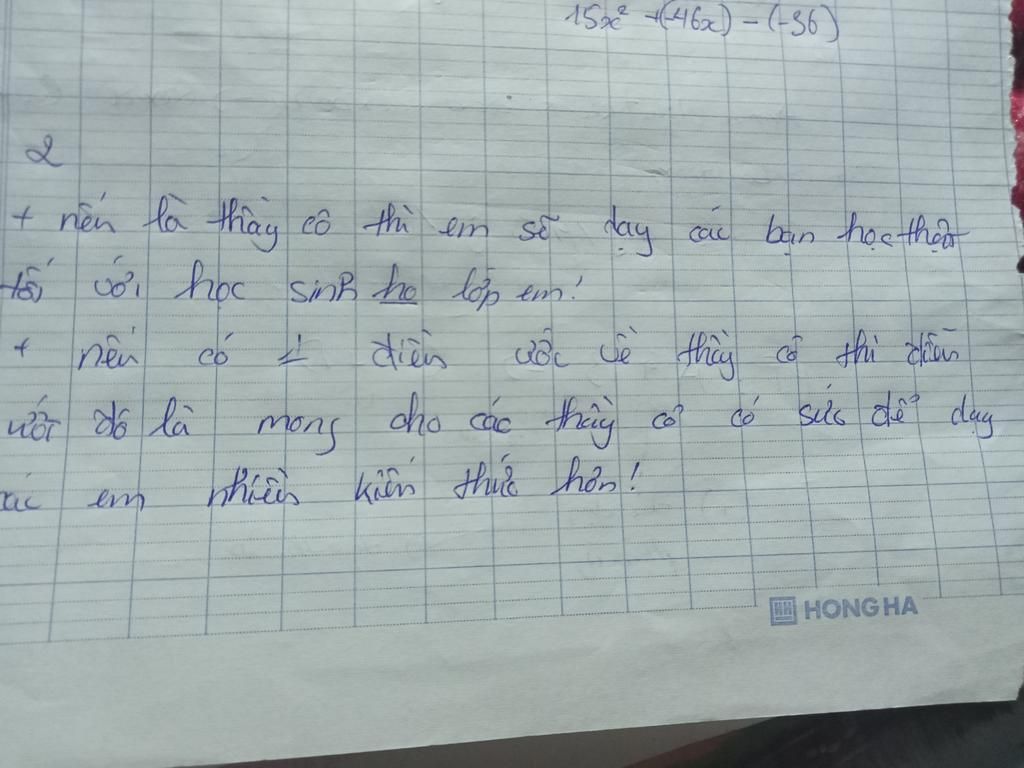 15x² + (-46x) - (-36)
2
+ nếu là thầy cô thì em sẽ dạy các bạn học thật
tốt với học sinh ho lớp em!
+ nếu có 1 điều ước về thầy cô thì điều
ước đó là mong cho các thầy cô có sức để dạy
các em nhiều kiến thức hơn!
HONG HA